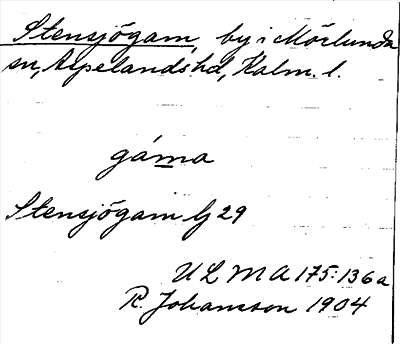 Stensjögam, by i Mörlunda
sn, Aspelands hd, Kalm. l.
gáma
Stensjögam Lj 29
ULMA 175:136a
R. Johansson 1904